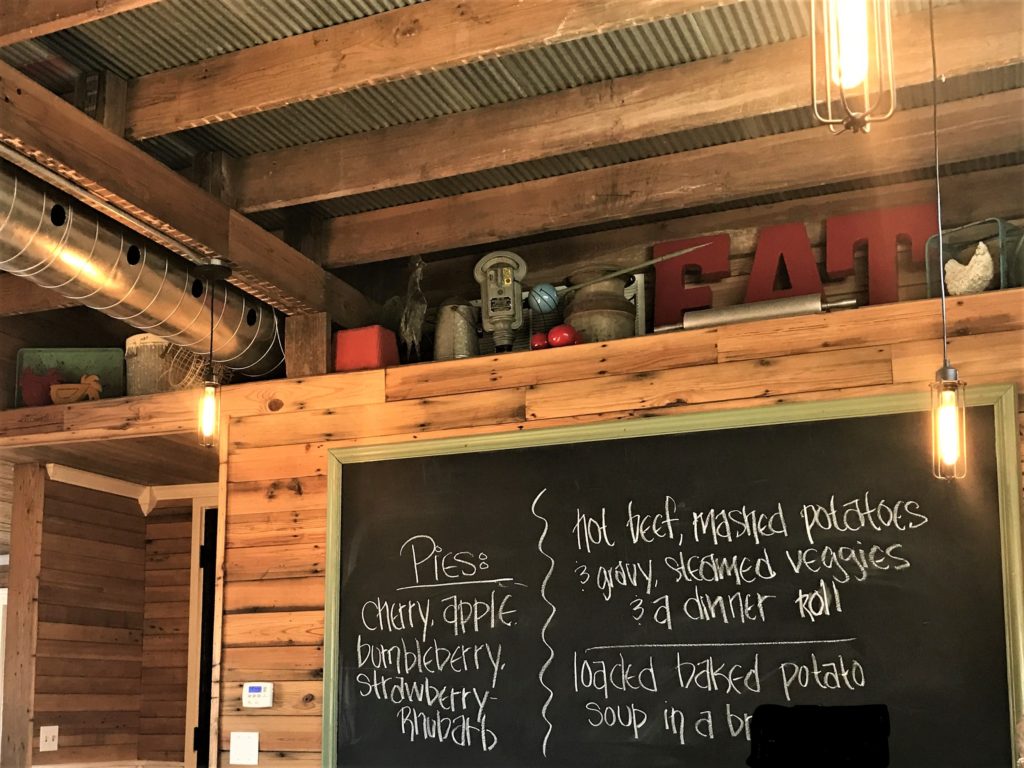 EAT
Pies:
cherry, apple
bumbleberry,
strawberry-
Rhubarb
hot beef, mashed potatoes
& gravy, steamed veggies
& a dinner roll
loaded baked potato
soup in a